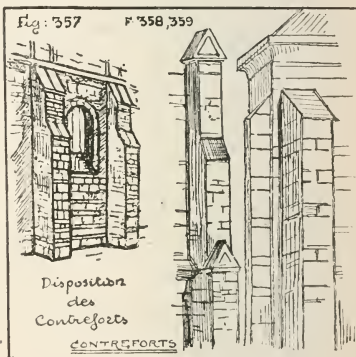 Fig: 357
F 358,359
Disposition
des
Contreforts
CONTREFORTS